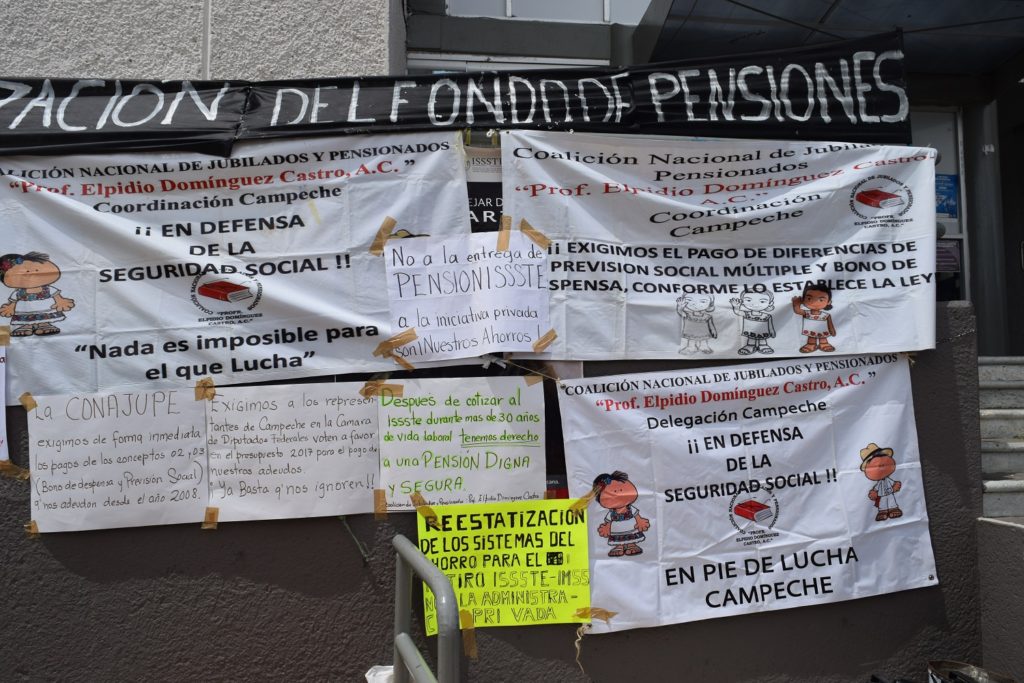 ZACION DEL FONDO DE PENSIONES
ALICIÓN NACIONAL DE JUBILADOS Y PENSIONADOS
"Prof. Elpidio Domínguez Castro, A.C."
Coordinación Campeche
¡¡ EN DEFENSA
DE LA
SEGURIDAD SOCIAL !!
"PROFR.
ELPIDIO DOMÍNGUEZ
CASTRO, A.C.
"Nada es imposible para
el que Lucha"
ISSSTE
EJAR D
ART
No a la entrega de
PENSIONISSSTE
a la iniciativa privada
son! Nuestros Ahorros!
Coalición Nacional de Jubila
Pensionados
"Prof. Elpidio Domínguez Castro,
A.C."
Coordinación
Campeche
"PROFR.
ELPIDIO DOMÍNGUEZ
CASTRO, A.C.
¡¡ EXIGIMOS EL PAGO DE DIFERENCIAS DE
PREVISION SOCIAL MÚLTIPLE Y BONO DE
SPENSA, CONFORME LO ESTABLECE LA LEY
La CONAJUPE
exigimos de forma inmediata
los pagos de los conceptos 02, 03
(Bono de despensa y Previsión Social)
q' nos adeudan desde el año 2008.
Exigimos a los represen
tantes de Campeche en la Cámara
de Diputados Federales voten a favor
en el presupuesto 2017 para el pago de
nuestros adeudos.
"Ya Basta q' nos ignoren!!
Despues de cotizar al
Issste durante mas de 30 años
de vida laboral tenemos derecho
a una PENSIÓN DIGNA
y SEGURA.
REESTATIZACIÓN
DE LOS SISTEMAS DEL
AHORRO PARA EL
TIRO ISSSTE-IMSS
LA ADMINISTRA-
PRIVADA
"COALICIÓN NACIONAL DE JUBILADOS Y PENSIONADOS
"Prof. Elpidio Domínguez Castro, A.C."
Delegación Campeche
¡¡ EN DEFENSA
DE LA
SEGURIDAD SOCIAL !!
"PROFR.
ELPIDIO DOMÍNGUEZ
CASTRO, A.C.
EN PIE DE LUCHA
CAMPECHE